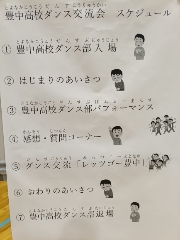 豊中高校ダンス交流会 スケジュール
① 豊中高校ダンス部入場
② はじまりのあいさつ
③ 豊中高校ダンス部パフォーマンス
④ 感想・質問コーナー
⑤ ダンス交流「レッツゴー豊中」
⑥ おわりのあいさつ
⑦ 豊中高校ダンス部退場